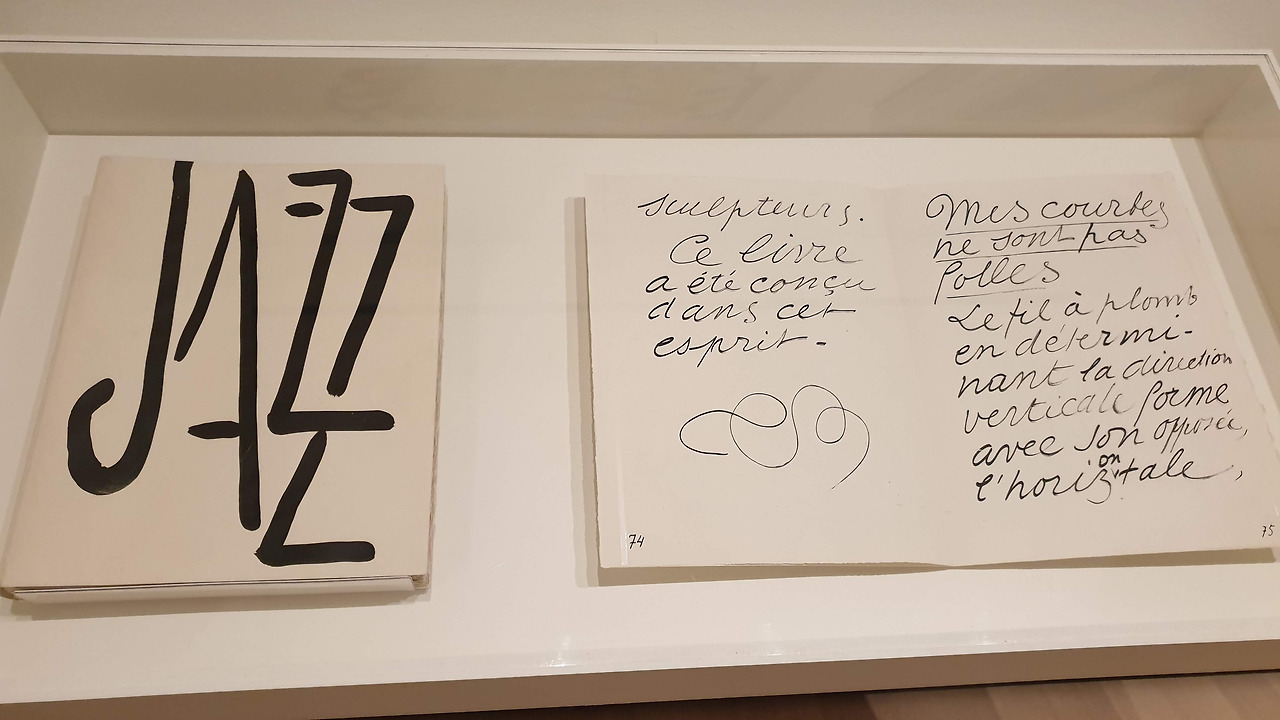 JAZZ
sculpteurs.
Ce livre
a été conçu
dans cet
esprit -
74
Mes courbes
ne sont pas
folles
Le fil à plomb
en détermi-
nant la direction
verticale forme
avec son opposée,
l'horizontale,
75